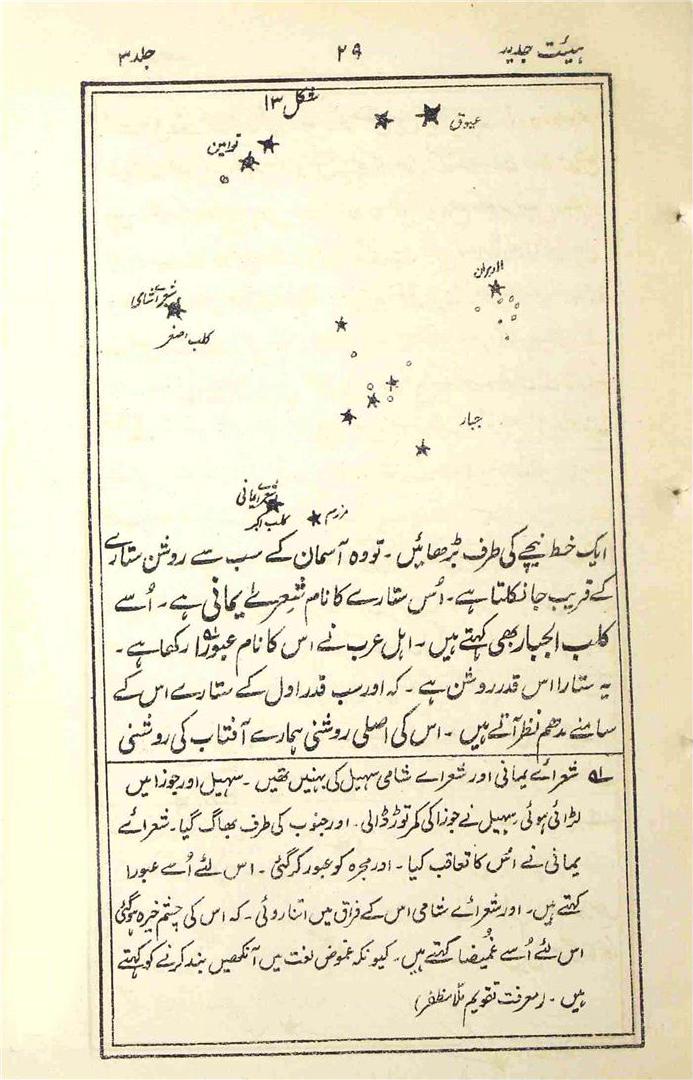 ہیئت جدید ۲۹ جلد ۳
شکل ۱۳
عیوق
توامین
الدبران
شعرائے شامی
کلب اصغر
جبار
شعرائے یمانی
کلب اکبر
مرزم
ایک خط نیچے کی طرف بڑھائیں ۔ تو وہ آسمان کے سب سے روشن ستارے
کے قریب جا نکلتا ہے ۔ اُس ستارے کا نام شعرائے یمانی ہے ۔ اُسے
کلب الجبار بھی کہتے ہیں ۔ اہل عرب نے اس کا نام عبورا۱؎ رکھا ہے ۔
یہ ستارا اس قدر روشن ہے ۔ کہ اور سب قدر اول کے ستارے اس کے
سامنے مدھم نظر آتے ہیں ۔ اس کی اصلی روشنی ہمارے آفتاب کی روشنی
۱؎ شعرائے یمانی اور شعرائے شامی سہیل کی بہنیں تھیں ۔ سہیل اور جوزا میں
لڑائی ہوئی ۔ سہیل نے جوزا کی کمر توڑ ڈالی ۔ اور جنوب کی طرف بھاگ گیا ۔ شعرائے
یمانی نے اس کا تعاقب کیا ۔ اور مجرہ کو عبور کر گئی ۔ اس لئے اُسے عبورا
کہتے ہیں ۔ اور شعرائے شامی اس کے فراق میں اتنا روئی ۔ کہ اس کی چشم خیرہ ہو گئی
اس لئے اُسے غمیضا کہتے ہیں ۔ کیونکہ غموض لغت میں آنکھیں بند کرنے کو کہتے
ہیں ۔ (معرفت تقویم ملّا مظفر)